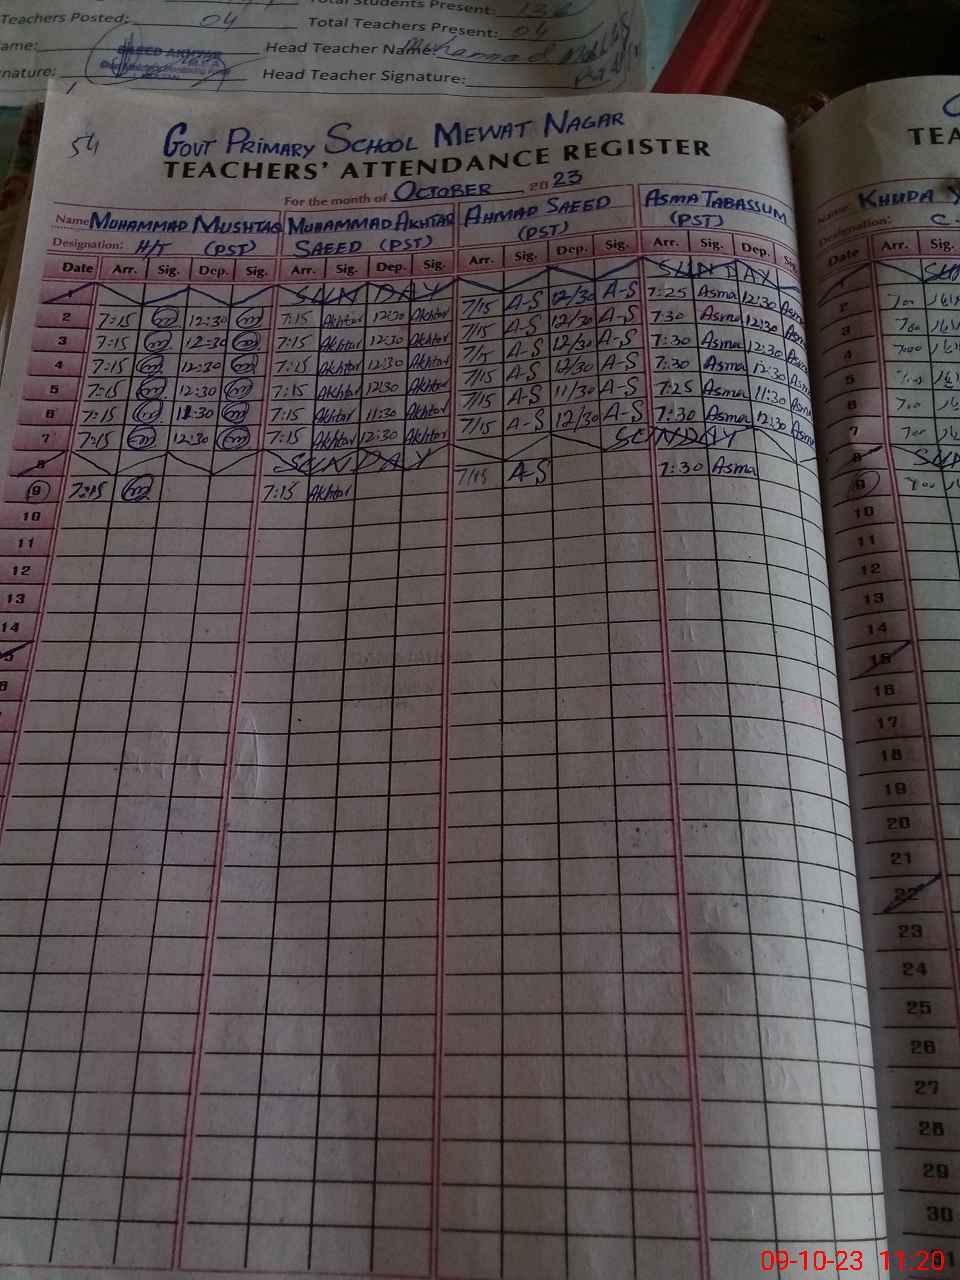 Total Students Present:
Teachers Posted: 04 Total Teachers Present: 04
ame: Head Teacher Name:
nature: Head Teacher Signature:
SAEED AKHTAR
54
GOVT PRIMARY SCHOOL MEWAT NAGAR
TEACHERS' ATTENDANCE REGISTER TEA
For the month of OCTOBER 2023
Name MUHAMMAD MUSHTAQ MUHAMMAD AKHTAR AHMAD SAEED ASMA TABASSUM Name: KHUDA
Designation: H/T (PST) SAEED (PST) (PST) (PST) Designation: C
Date Arr. Sig. Dep. Sig. Arr. Sig. Dep. Sig. Arr. Sig. Dep. Sig. Arr. Sig. Dep. Sig. Date Arr. Sig.
1 SUNDAY SUNDAY 1
2 7:15 m 12:30 m 7:15 Akhtar 12:30 Akhtar 7/15 A-S 12/30 A-S 7:25 Asma 12:30 Asma 2 700
3 7:15 m 12:30 m 7:15 Akhtar 12:30 Akhtar 7/15 A-S 12/30 A-S 7:30 Asma 12:30 Asma 3 700
4 7:15 m 12:30 m 7:15 Akhtar 12:30 Akhtar 7/15 A-S 12/30 A-S 7:30 Asma 12:30 Asma 4 700
5 7:15 m 12:30 m 7:15 Akhtar 12:30 Akhtar 7/15 A-S 12/30 A-S 7:30 Asma 12:30 Asma 5
6 7:15 m 11:30 m 7:15 Akhtar 11:30 Akhtar 7/15 A-S 11/30 A-S 7:25 Asma 11:30 Asma 6 700
7 7:15 m 12:30 m 7:15 Akhtar 12:30 Akhtar 7/15 A-S 12/30 A-S 7:30 Asma 12:30 Asma 7 700
8 SUNDAY SUNDAY 8
9 7:15 m 7:15 Akhtar 7/15 A-S 7:30 Asma 9 700
10 10
11 11
12 12
13 13
14 14
15
16
17
18
19
20
21
22
23
24
25
26
27
28
29
30
09-10-23 11:20